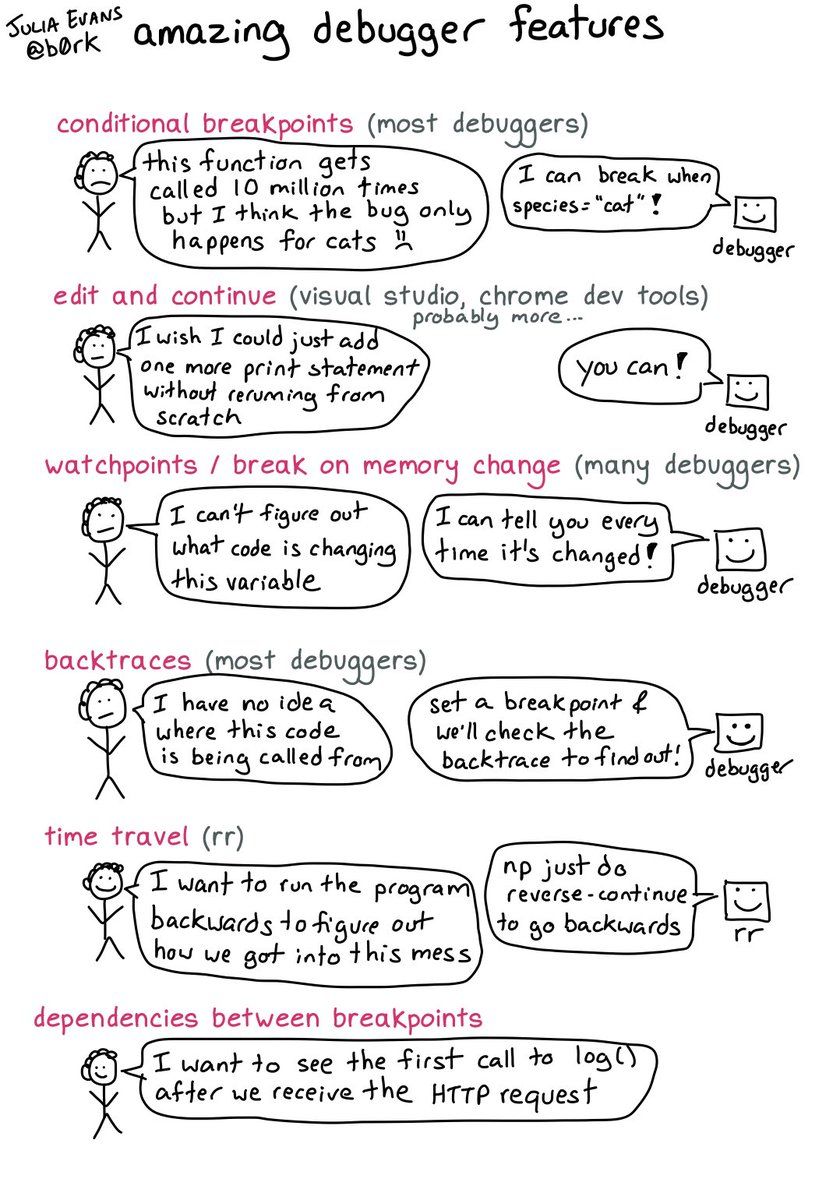 JULIA EVANS
@b0rk
amazing debugger features
conditional breakpoints (most debuggers)
this function gets
called 10 million times
but I think the bug only
happens for cats
I can break when
species="cat"!
debugger
edit and continue (visual studio, chrome dev tools)
probably more...
I wish I could just add
one more print statement
without rerunning from
scratch
you can!
debugger
watchpoints / break on memory change (many debuggers)
I can't figure out
what code is changing
this variable
I can tell you every
time it's changed!
debugger
backtraces (most debuggers)
I have no idea
where this code
is being called from
set a breakpoint &
we'll check the
backtrace to find out!
debugger
time travel (rr)
I want to run the program
backwards to figure out
how we got into this mess
np just do
reverse-continue
to go backwards
rr
dependencies between breakpoints
I want to see the first call to log()
after we receive the HTTP request